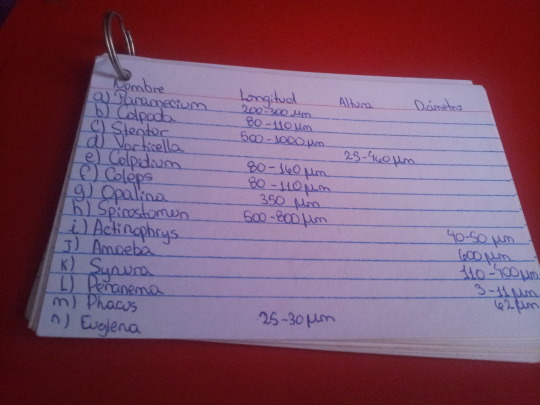 Nombre Longitud Altura Diámetro
a) Paramecium 200-300 µm
b) Colpoda 80-110 µm
c) Stentor 500-1000 µm
d) Vorticella 25-440 µm
e) Colpidium 80-160 µm
f) Coleps 80-110 µm
g) Opalina 350 µm
h) Spirostomun 500-800 µm
i) Actinophrys 40-50 µm
J) Amoeba 600 µm
K) Synura 110-400 µm
L) Peranema 3-11 µm
m) Phacus 62 µm
n) Euglena 25-30 µm